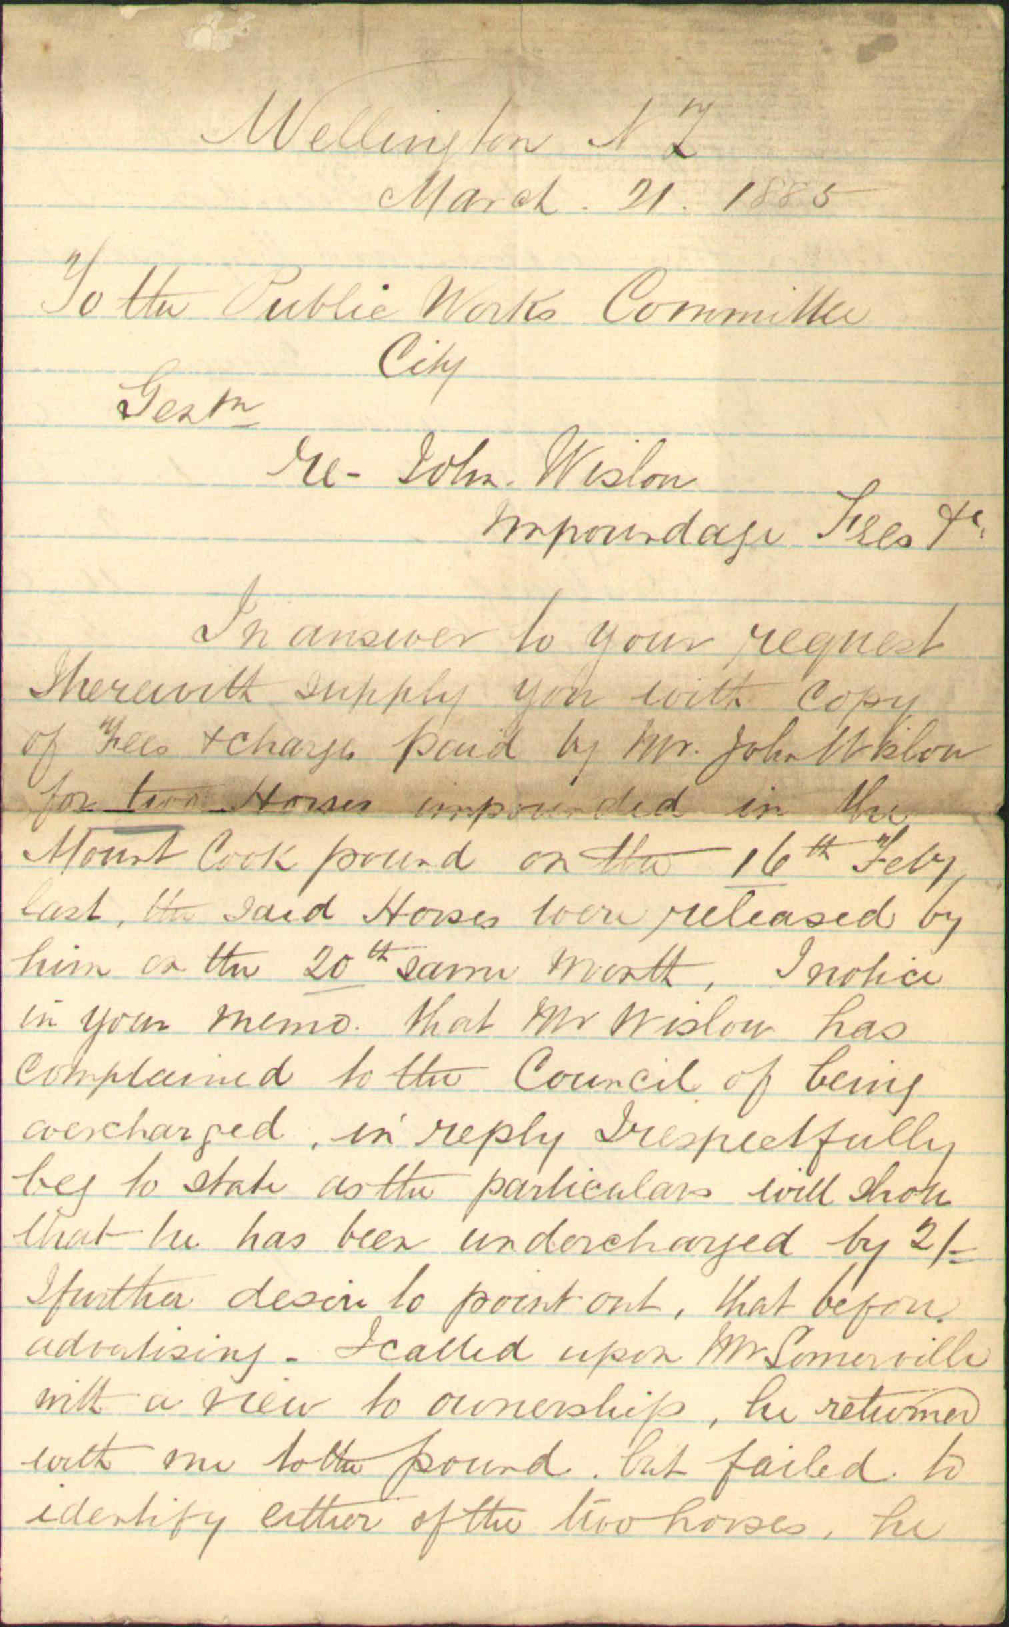 Wellington N Z
March. 21. 1885
To the Public Works Committee
City
Gentn
re- John. Wislow
Impoundage Fees &c.
In answer to your request
I herewith supply you with copy
of Fees & charges paid by Mr. John Wislow
for two Horses impounded in the
Mount Cook pound on the 16th Feby
last, the said Horses were released by
him on the 20th same month, I notice
in your memo. that Mr Wislow has
complained to the Council of being
overcharged, in reply I respectfully
beg to state as the particulars will show
that he has been undercharged by 2/-
I further desire to point out, that before
advertising - I called upon Mr Somerville
with a view to ownership, he returned
with me to the pound. but failed to
identify either of the two horses, he